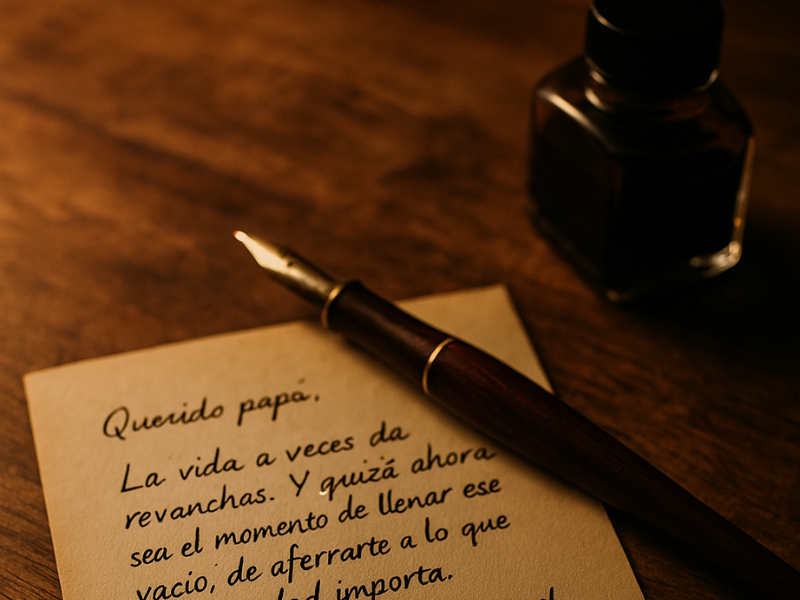 Querido papá,
La vida a veces da
revanchas. Y quizá ahora
sea el momento de llenar ese
vacio, de aferrarte a lo que
importa.